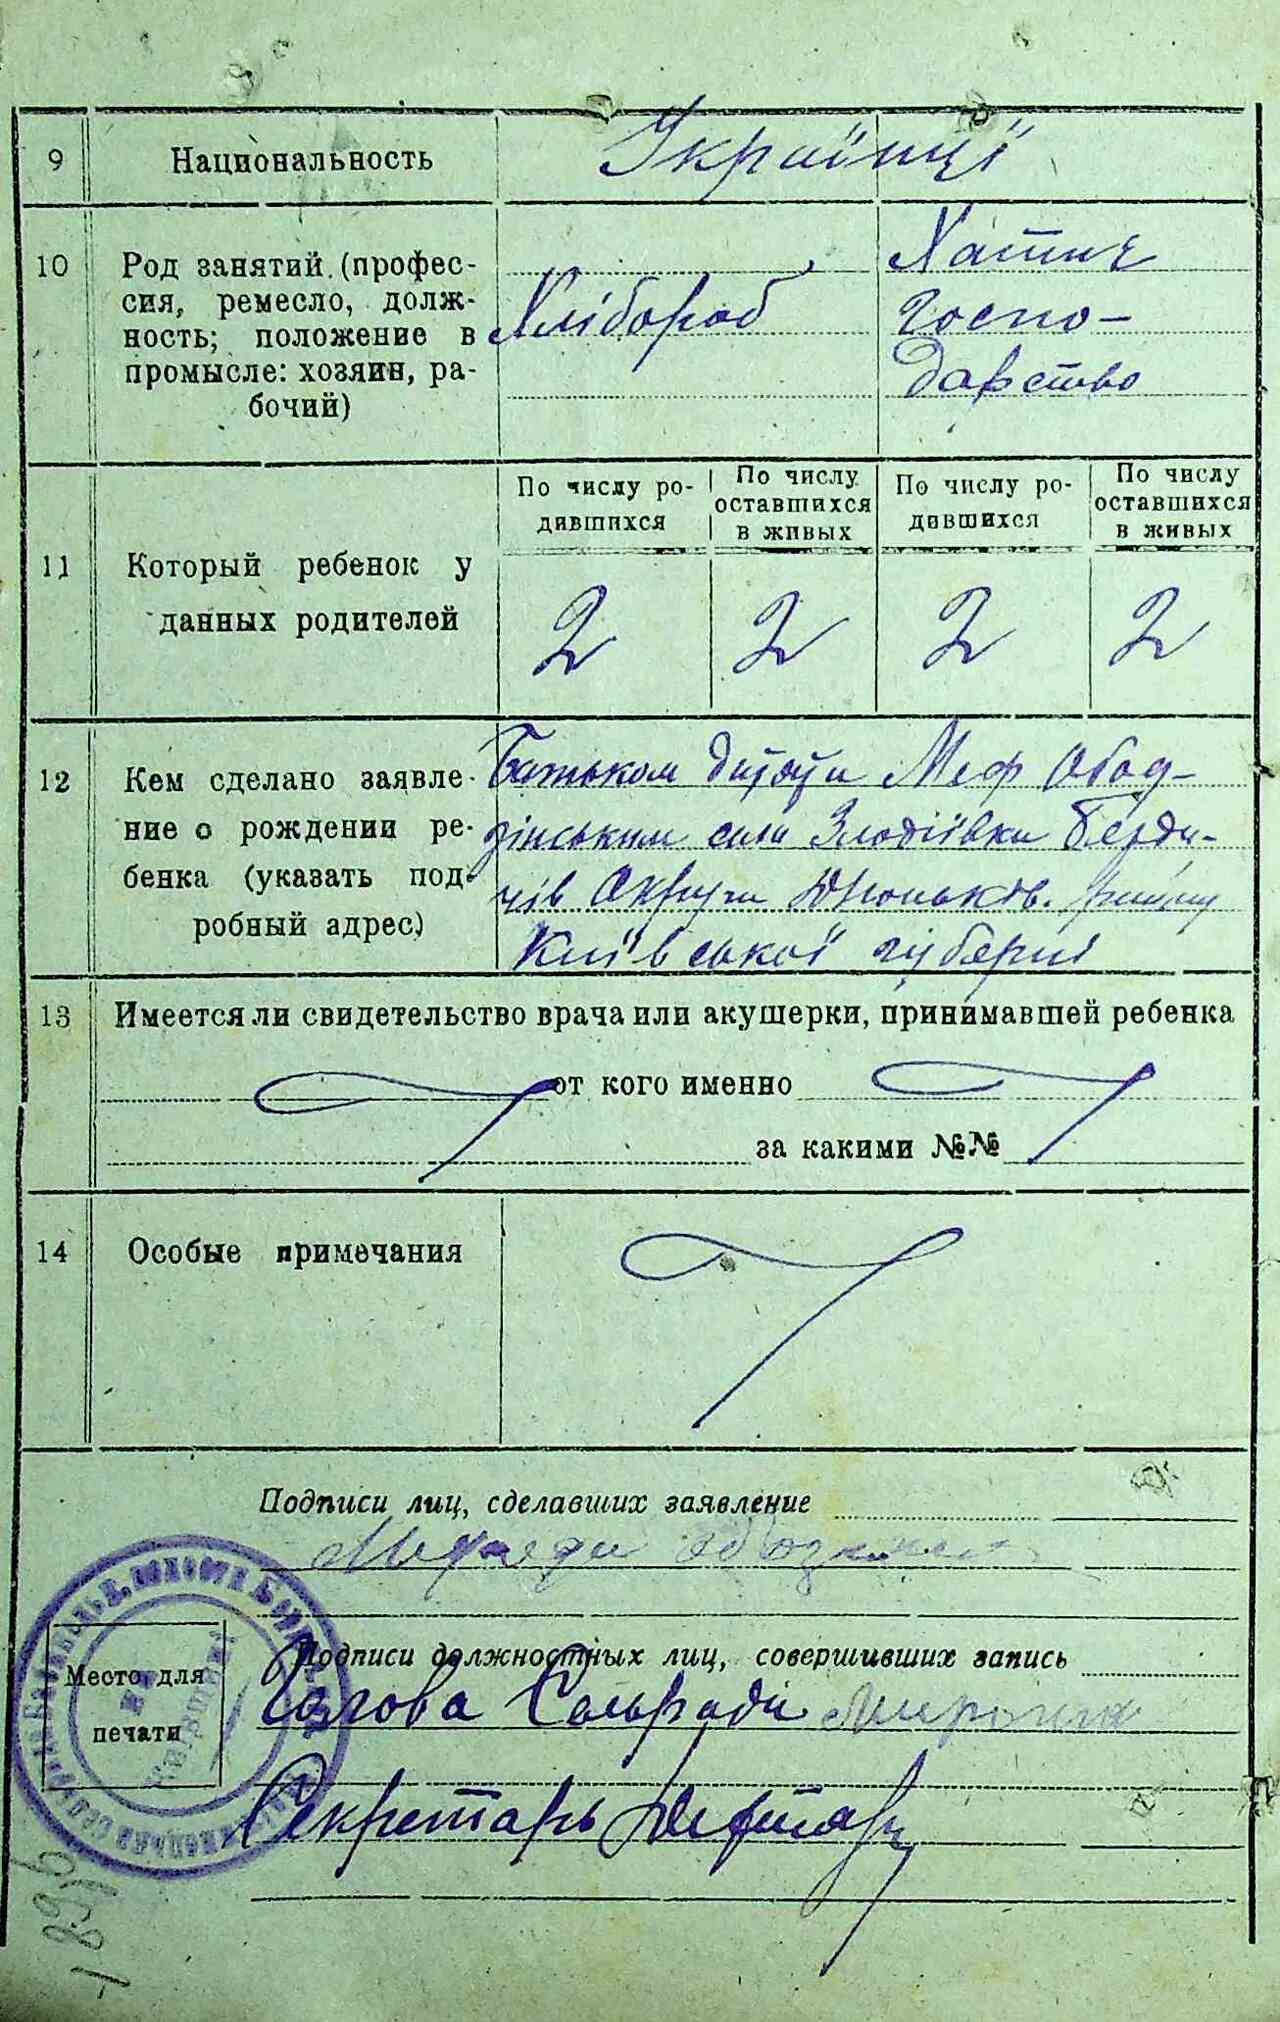 9 Национальность Українці
10 Род занятий (профес-
сия, ремесло, долж-
ность; положение в
промысле: хозяин, ра-
бочий)
Хлібороб
Хатнє
Госпо-
дарство
По числу ро-
дившихся
По числу
оставшихся
в живых
По числу ро-
дившихся
По числу
оставшихся
в живых
11 Который ребенок у
данных родителей
2 2 2 2
12 Кем сделано заявле-
ние о рождении ре-
бенка (указать под-
робный адрес)
Батьком дитяти Меф Обод-
зінським села Злодіївки Берди-
чів Округи району
Київської губернії
13 Имеется ли свидетельство врача или акушерки, принимавшей ребенка
от кого именно
за какими №№
14 Особые примечания
Подписи лиц, сделавших заявление
Подписи должностных лиц, совершивших запись
Место для
печати
Голова Сельради
Секретарь